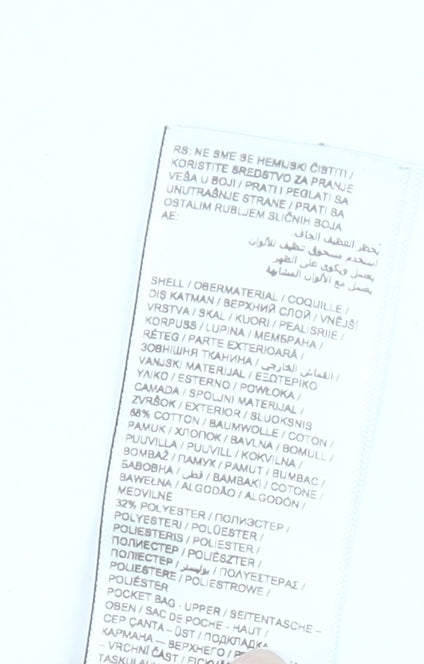 RS: NE SME SE HEMIJSKI ČISTITI /
KORISTITE SREDSTVO ZA PRANJE
VEŠA U BOJI / PRATI I PEGLATI SA
UNUTRAŠNJE STRANE / PRATI SA
OSTALIM RUBLJEM SLIČNIH BOJA
AE:
يحظر التنظيف الجاف
استخدم مسحوق تنظيف للألوان
يغسل ويكوى على الظهر
يغسل مع الألوان المشابهة
SHELL / OBERMATERIAL / COQUILLE /
DIŞ KATMAN / ВЕРХНИЙ СЛОЙ / VNĚJŠÍ
VRSTVA / SKAL / KUORI / PEALISRIIE /
KORPUSS / LUPINA / МЕМБРАНА /
RÉTEG / PARTE EXTERIOARĂ /
ЗОВНІШНЯ ТКАНИНА / القماش الخارجي /
VANJSKI MATERIJAL / ΕΞΩΤΕΡΙΚΟ
ΥΛΙΚΟ / ESTERNO / POWŁOKA /
CAMADA / SPOLJNI MATERIJAL /
ZVRŠOK / EXTERIOR / SLUOKSNIS
68% COTTON / BAUMWOLLE / COTON /
PAMUK / ХЛОПОК / BAVLNA / BOMULL /
PUUVILLA / PUUVILL / KOKVILNA /
BOMBAŽ / ПАМУК / PAMUT / BUMBAC /
БАВОВНА / قطن / ΒΑΜΒΑΚΙ / COTONE /
BAWEŁNA / ALGODÃO / ALGODÓN /
MEDVILNĖ
32% POLYESTER / ПОЛИЭСТЕР /
POLYESTERI / POLÜESTER /
POLIESTERIS / POLIESTER /
ПОЛИЕСТЕР / POLIÉSZTER /
ПОЛІЕСТЕР / بوليستر / ΠΟΛΥΕΣΤΕΡΑΣ /
POLIESTERE / POLIESTROWE /
POLIÉSTER
POCKET BAG - UPPER / SEITENTASCHE –
OBEN / SAC DE POCHE - HAUT /
CEP ÇANTA – ÜST / ПОДКЛАДКА
КАРМАНА — ВЕРХНЕГО /
– VRCHNÍ ČÁST /